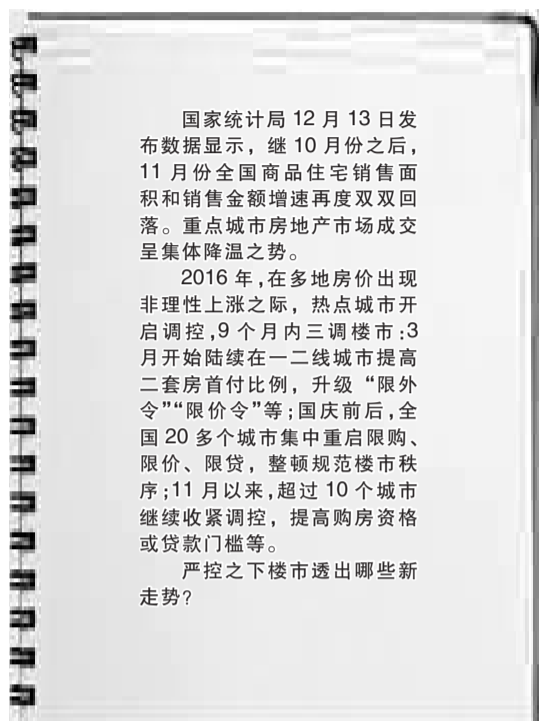 国家统计局 12 月 13 日发
布数据显示，继 10 月份之后，
11 月份全国商品住宅销售面
积和销售金额增速再度双双回
落。重点城市房地产市场成交
呈集体降温之势。
2016 年，在多地房价出现
非理性上涨之际，热点城市开
启调控，9 个月内三调楼市：3
月开始陆续在一二线城市提高
二套房首付比例，升级“限外
令”“限价令”等；国庆前后，全
国 20 多个城市集中重启限购、
限价、限贷，整顿规范楼市秩
序；11 月以来，超过 10 个城市
继续收紧调控，提高购房资格
或贷款门槛等。
严控之下楼市透出哪些新
走势？